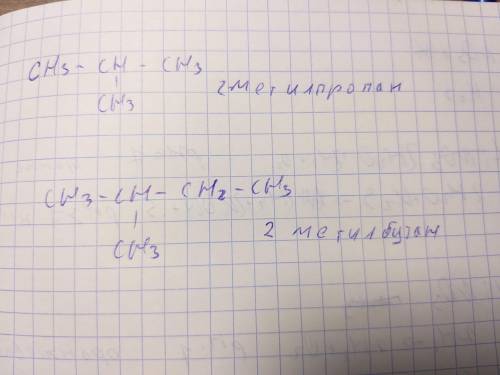 CH3 - CH - CH3
|
CH3
2метилпропан
CH3 - CH - CH2 - CH3
|
CH3
2 метилбутан